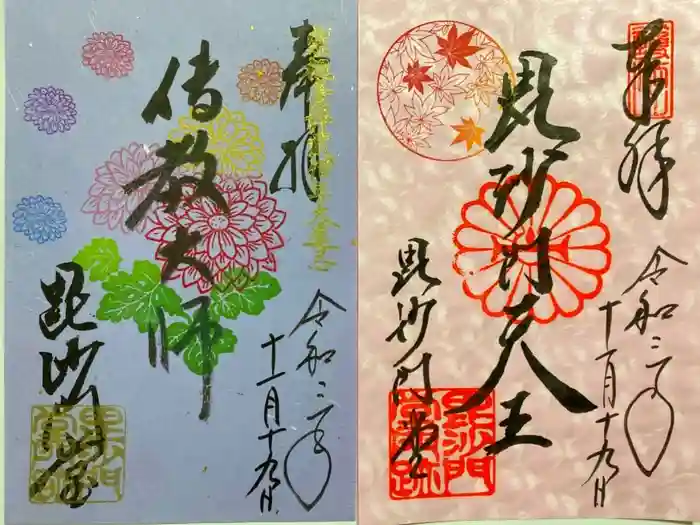 奉拝
伝教大師
毘沙門堂
令和三年
十一月十九日
奉拝
毘沙門天王
毘沙門堂
令和三年
十一月十九日